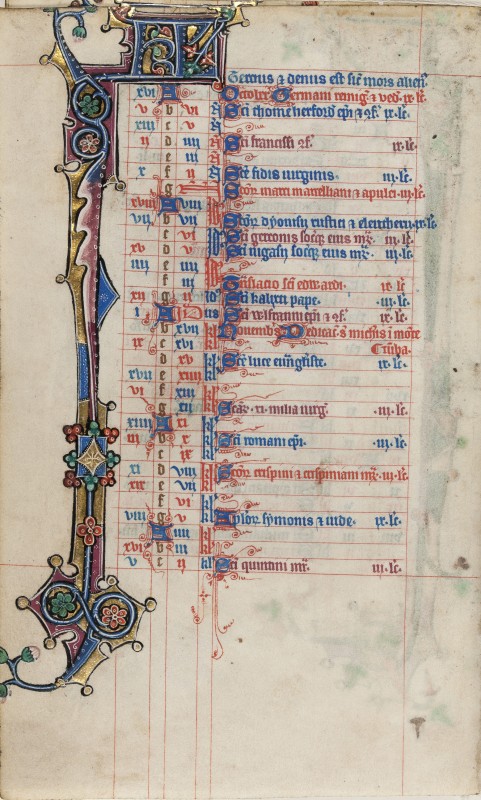 KL Tercius & denus est sic mors alien
xvi A Octobr Germani remig & ved ix lc
v b vi N Sci thome herford epi & 9f. ix lc
xiii c v N
ii d iiii N Sci francisci 9f. ix lc
e iii N
x f ii N Sce fidis virginis iii lc
g Scor marci marcelliani & apulei iii lc
xviii A viii Scor dyonisii rustici & eleutherii ix lc
vii b vii
c vi Sci gereonis socior eius mr iii lc
xv d v Sci nigasii socior eius mr iii lc
iiii e iiii
f iii Translacio sci edwardi ix lc
xii g ii id Sci kalixti pape iii lc
i A Idus Sci wlfranni epi & 9f. ix lc
b xvii Nouemb Dedicac s michis i monte
ix c xvi Tumba
d xv kl Sce luce ewngliste ix lc
xvii e xiiii kl
vi f xiii kl
g xii kl Scar xi milia virg iii lc
xiiii A xi kl
iii b x kl Sci romani epi iii lc
c ix kl
xi d viii kl Scor crispini & crispiniani mr iii lc
xix e vii kl
f vi kl
viii g v kl Aplor symonis & iude ix lc
A iiii kl
xvi b iii kl
v c ii kl Sci quintini mr iii lc